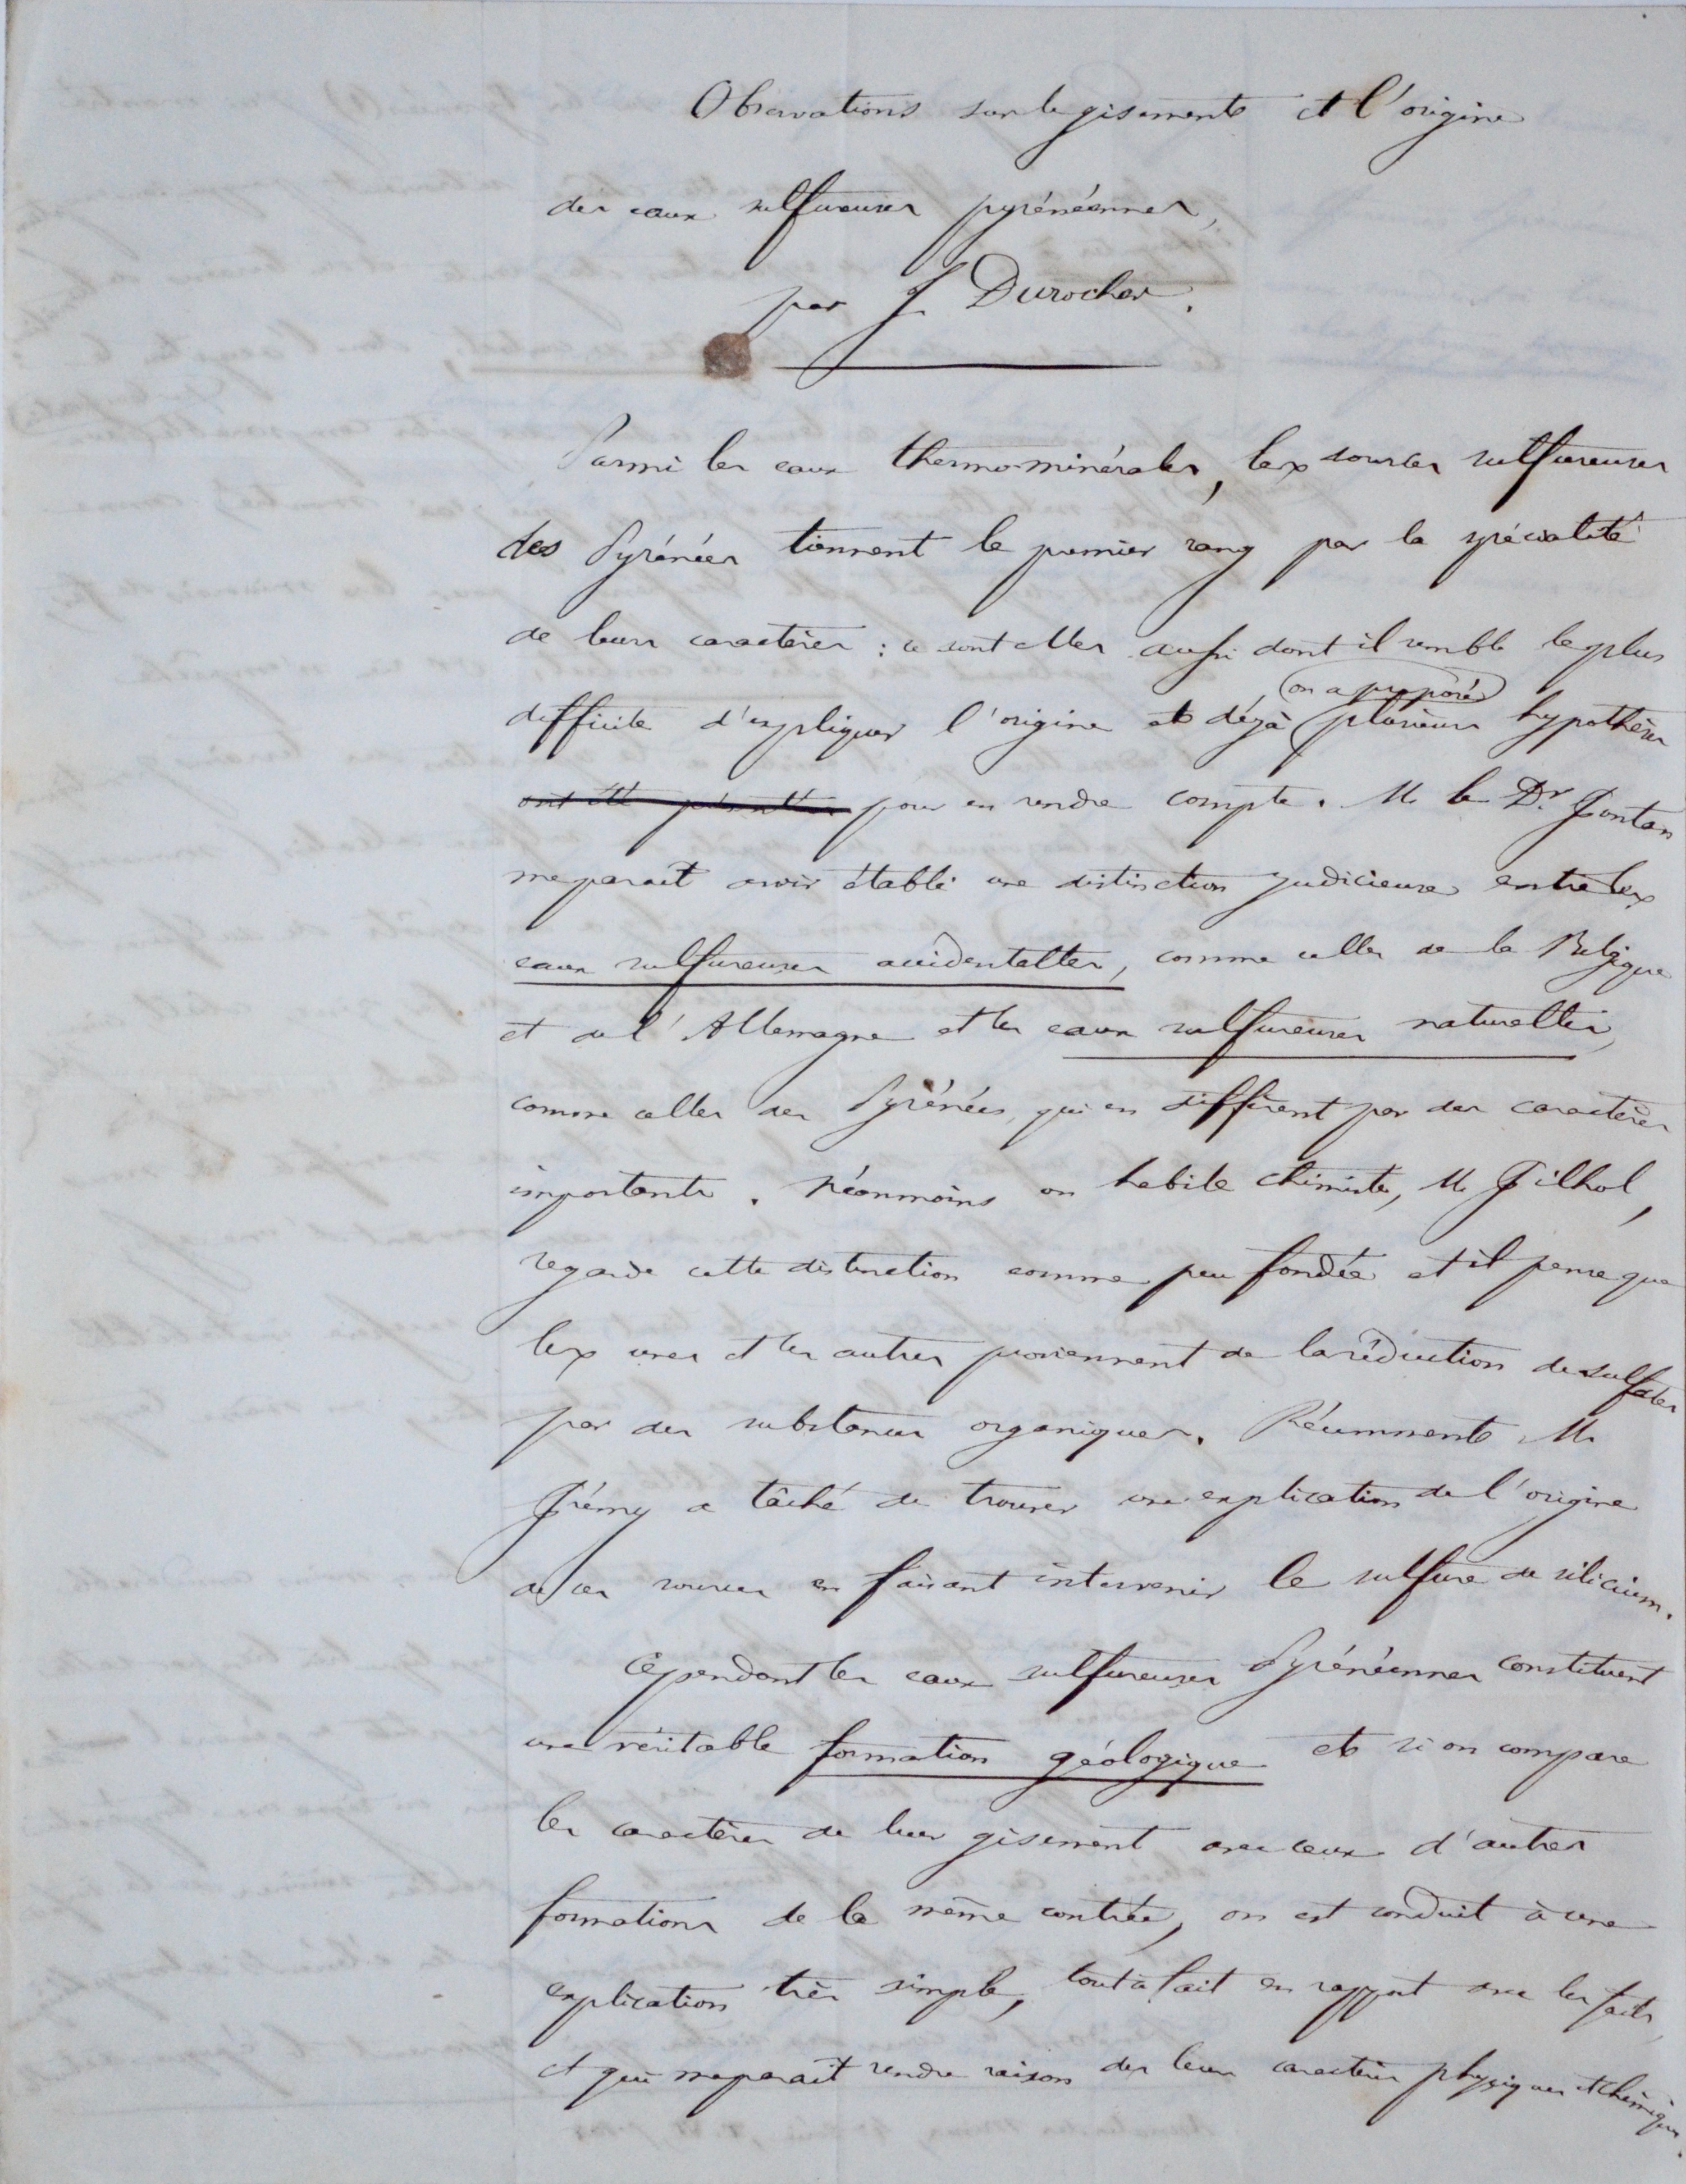 Observations sur le gisement et l'origine
des eaux sulfureuses pyrénéennes,
par J Durocher.
Parmi les eaux thermo-minérales, les sources sulfureuses
des Pyrénées tiennent le premier rang par la spécialité
de leurs caractères : ce sont elles aussi dont il semble le plus
on a proposé
difficile d'expliquer l'origine et déjà plusieurs hypothèses
ont été pour en rendre compte. M. le Dr Fontan
me paraît avoir établi une distinction judicieuse entre les
eaux sulfureuses accidentelles, comme celles de la Belgique
et de l'Allemagne et les eaux sulfureuses naturelles,
comme celles des Pyrénées, qui en diffèrent par des caractères
importants. Néanmoins un habile chimiste, M. Filhol,
regarde cette distinction comme peu fondée et il pense que
les unes et les autres proviennent de la réduction de sulfates
par des substances organiques. Récemment M.
Frémy a tâché de trouver une explication de l'origine
de ces sources en faisant intervenir le sulfure de silicium.
Cependant les eaux sulfureuses Pyrénéennes constituent
une véritable formation géologique et si on compare
les caractères de leur gisement avec ceux d'autres
formations de la même contrée, on est conduit à une
explication très simple, tout à fait en rapport avec les faits,
et qui me paraît rendre raison des leurs caractères physiques et chimiques.